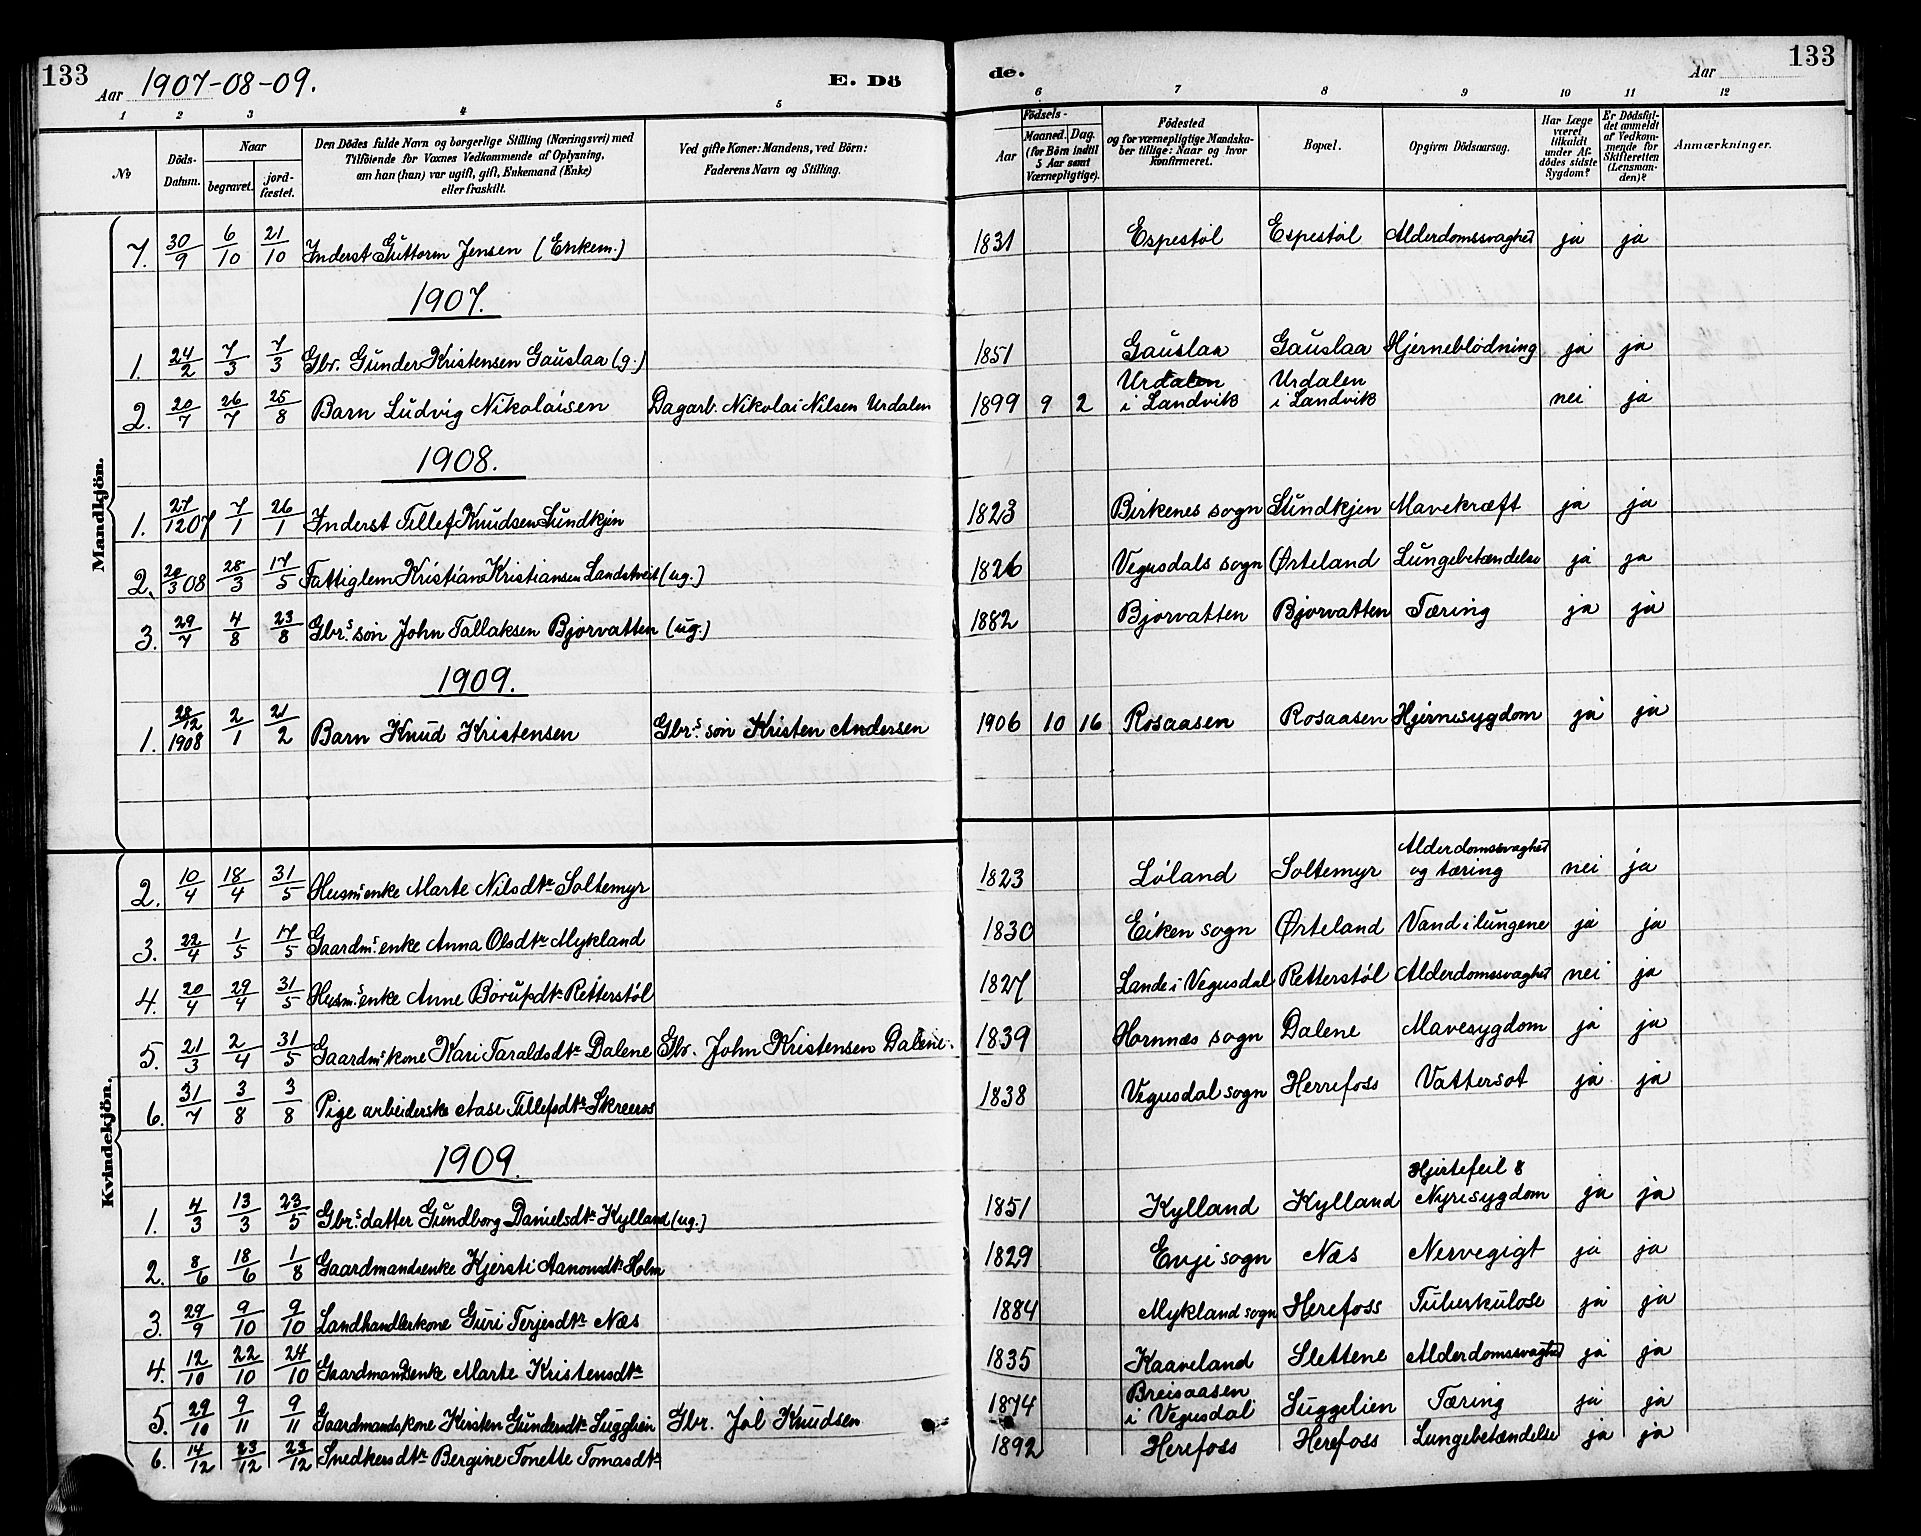 133
Aar 1907-08-09.
E. Dö
de.
Aar
133
1 2 3 4 5 6 7 8 9 10 11 12
No
Döds-Datum.
Naar
begravet.
jord-fæstet.
Den Dödes fulde Navn og borgerlige Stilling (Næringsvei) med
Tilföiende for Voxnes Vedkommende af Oplysning,
om han (hun) var ugift, gift, Enkemand (Enke)
eller fraskilt.
Ved gifte Koner: Mandens, ved Börn:
Faderens Navn og Stilling.
Födsels-
Aar
Maaned. Dag.
(for Börn indtil
5 Aar samt
Værnepligtige).
Födested
og for værnepligtige Mandska-
ber tillige: Naar og hvor
konfirmeret.
Bopæl.
Opgiven Dödsaarsag.
Har Læge
været
tilkaldt
under Af-
dödes sidste
Sygdom?
Er Dödsfal-
det anmeldt
af Vedkom-
mende for
Skifteretten
(Lensman-
den)?
Anmærkninger.
Mandkjön.
7. 30/9 6/10 21/10 Inderst Guttorm Jensen (Enkem.) 1831 Espestøl Espestøl Alderdomssvaghet ja ja
1907.
1. 24/2 7/3 7/3 Gbr. Gunder Kristensen Gauslaa (g.) 1851 Gauslaa Gauslaa Hjerneblødning ja ja
2. 20/7 26/7 25/8 Barn Ludvig Nikolaisen Dagarb. Nikolai Nilsen Urdalen 1899 9 2 Urdalen i Landvik Urdalen i Landvik nei ja
1908.
1. 27/12 07 7/1 26/1 Inderst Tellef Knudsen Lundkjen 1823 Birkenes sogn Stundkjen Mavekræft ja ja
2. 20/3 08 28/3 17/5 Fattiglem Kristian Kristiansen Landstveit (ug.) 1826 Vegusdals sogn Ørteland Lungebetændelse ja ja
3. 29/7 4/8 23/8 Gbr.s søn John Tallaksen Bjorvatten (ug.) 1882 Bjorvatten Bjorvatten Tæring ja ja
1909.
1. 28/12 1908 2/1 21/2 Barn Knud Kristensen Gbr.s søn Kristen Andersen 1906 10 16 Rosaasen Rosaasen Hjernesygdom ja ja
Kvindekjön.
2. 10/4 18/4 31/5 Husm.enke Marte Nilsdtr Soltemyr 1823 Løland Soltemyr Alderdomssvaghet og tæring nei ja
3. 22/4 1/5 17/5 Gaardm.s enke Anna Olsdtr Mykland 1830 Eiken sogn Ørteland Vand i lungene ja ja
4. 20/4 29/4 31/5 Husm.s enke Anne Borufsdtr Retterstøl 1827 Lande i Vegusdal Retterstøl Alderdomssvaghet nei ja
5. 21/3 2/4 31/5 Gaardm.s kone Kari Taraldsdtr Dalene Gbr. John Kristensen Dalene. 1839 Hornnæs sogn Dalene Mavesygdom ja ja
6. 31/7 3/8 3/8 Pige arbeiderske Aase Tellefsdtr Skreeros 1838 Vegusdal sogn Herrefoss Vattersot ja ja
1909.
1. 4/3 13/3 23/5 Gbr.s datter Gundborg Danielsdtr Kylland (ug.) 1851 Kylland Kylland Hjertefeil & Nyresygdom ja ja
2. 8/6 18/6 1/8 Gaardmandsenke Kjersti Aanonsdtr Holm 1829 Evje sogn Næs Nervegigt ja ja
3. 29/9 9/10 9/10 Landhandlerkone Guri Terjesdtr Næs 1884 Mykland sogn Herefoss Tuberkulose ja ja
4. 12/10 22/10 24/10 Gaardmandsenke Marte Kristensdtr 1835 Kaaveland Slettene Alderdomssvaghed ja ja
5. 29/10 9/11 9/11 Gaardmandskone Kirsten Gundersdtr Sugglien Gbr. Jol Knudsen 1874 Breisaasen i Vegusdal Suggelien Tæring ja ja
6. 14/12 23/12 23/12 Snedkersdtr Bergine Tonette Tomasdtr 1892 Herefoss Herefoss Lungebetændelse ja ja